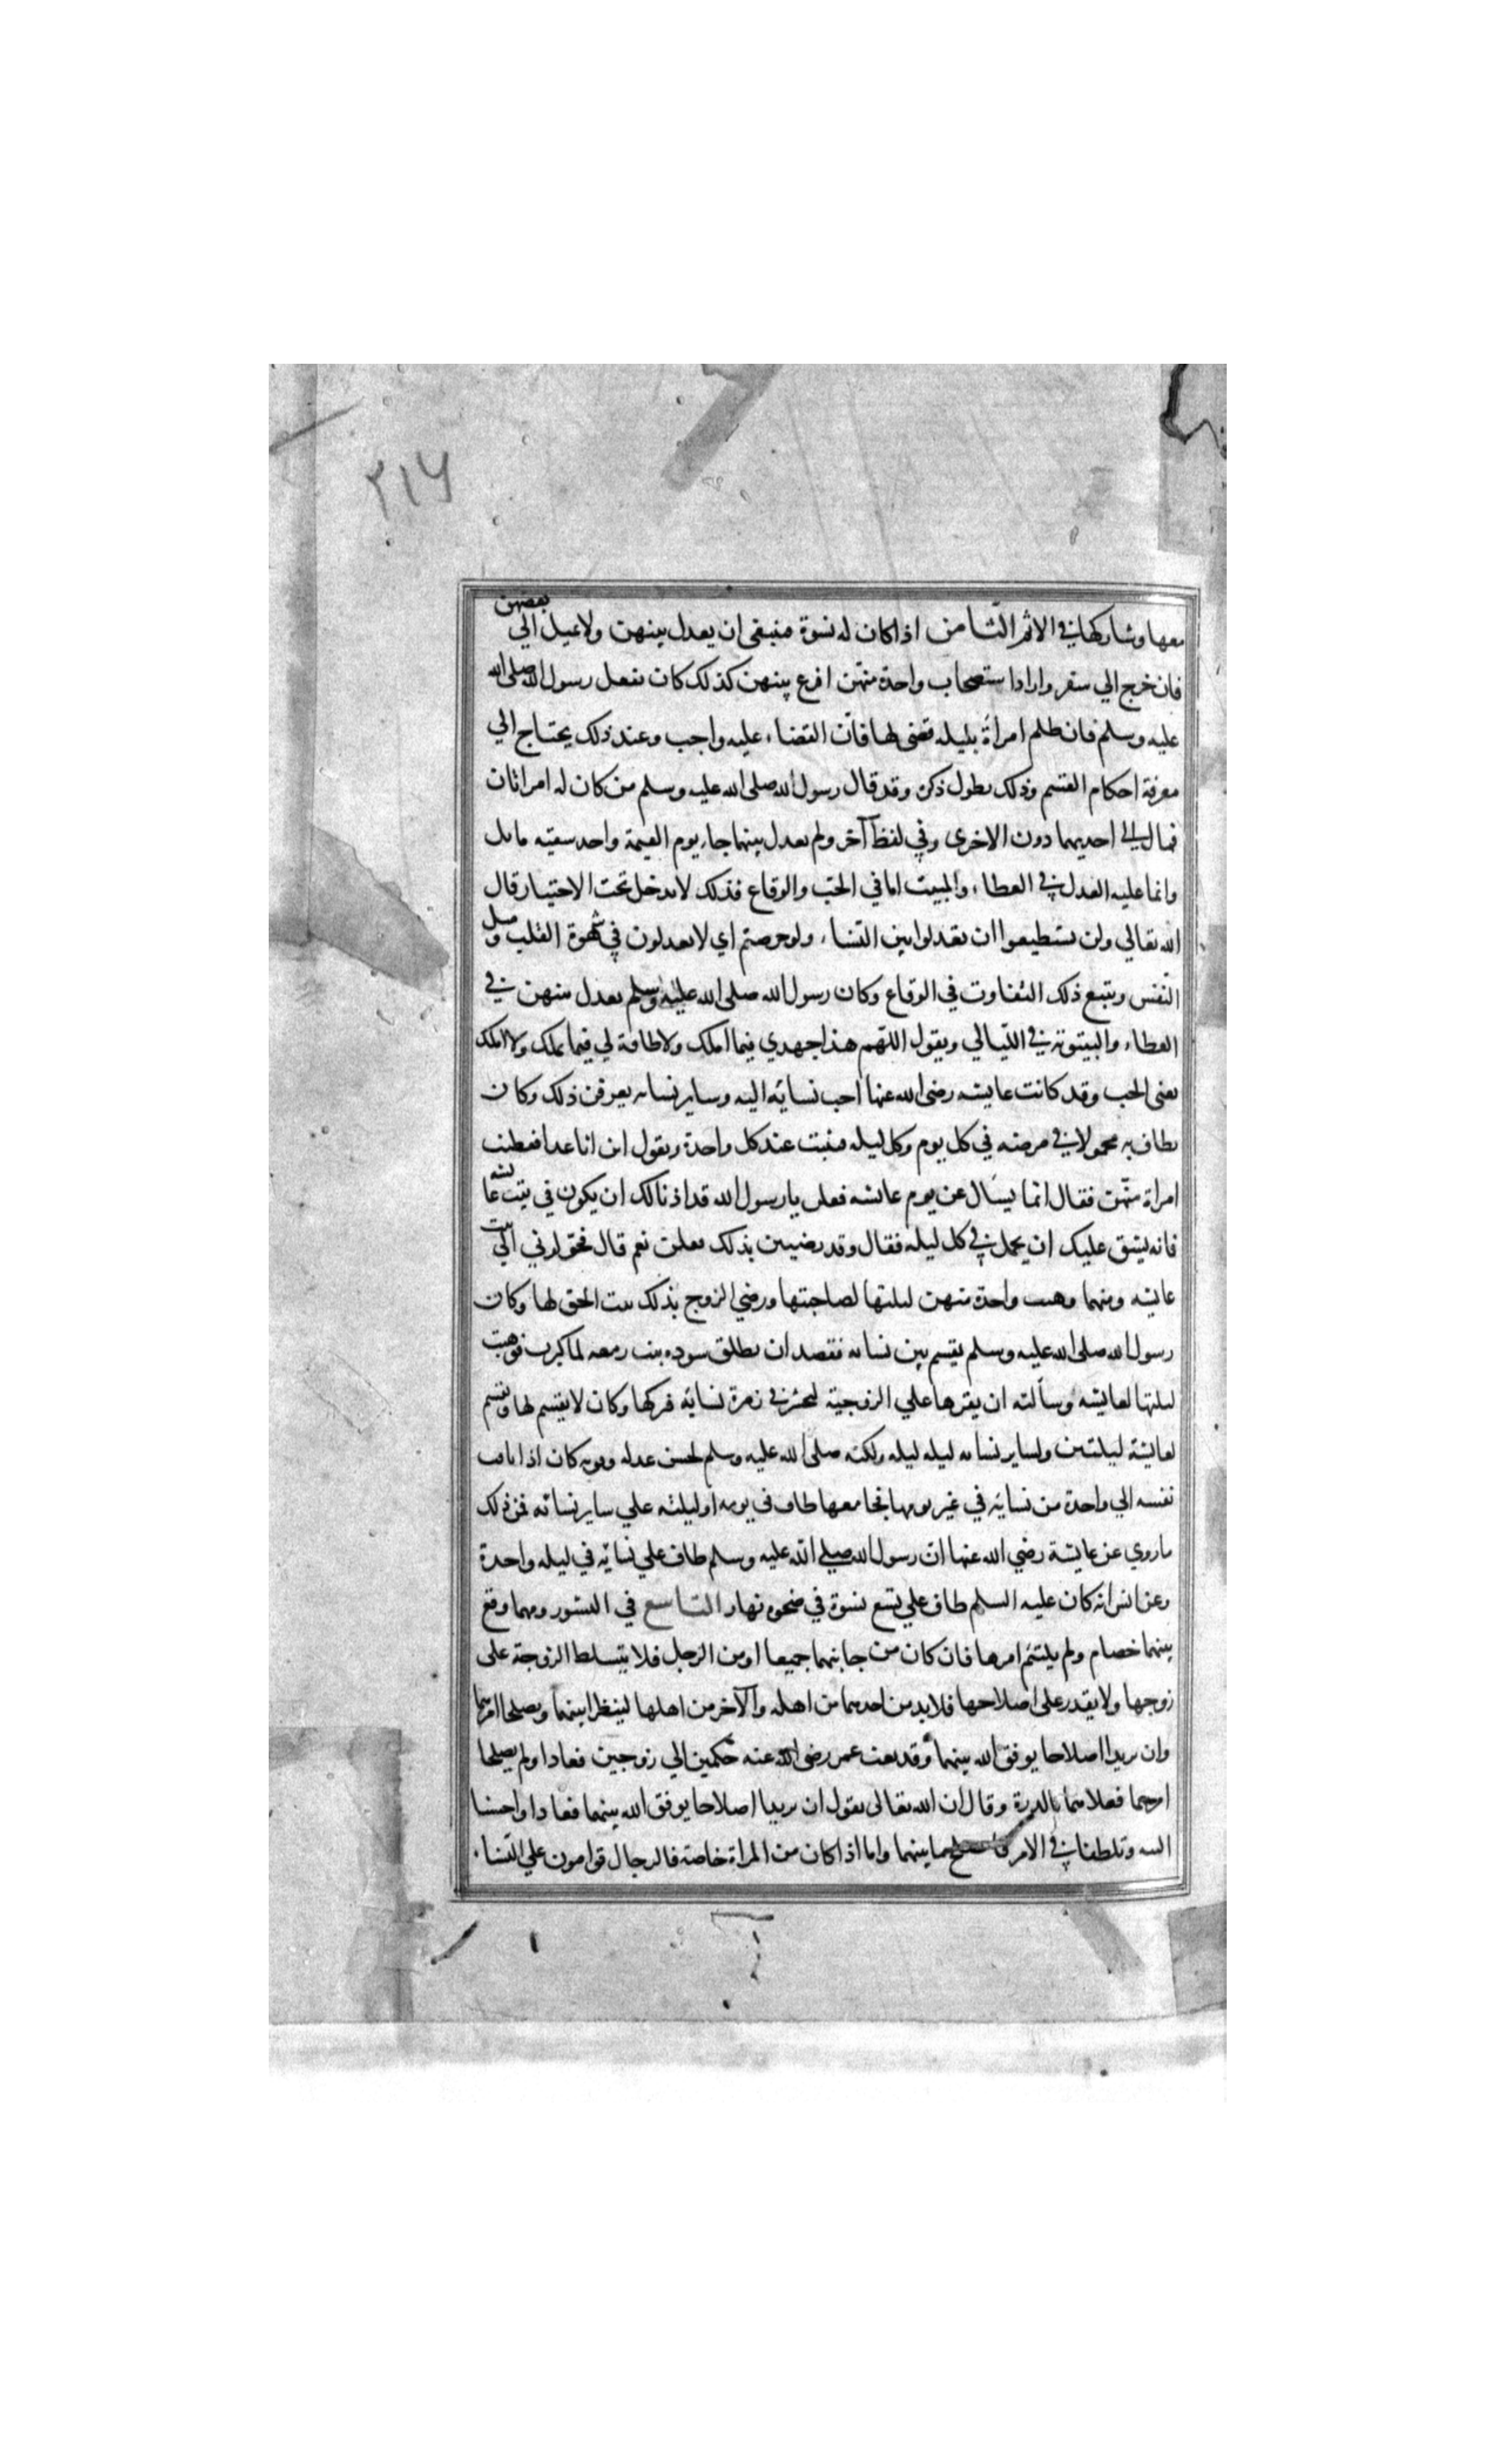 ٢١٦
معها وشاركها في الاثم الثامن اذا كان له نسوة فينبغي ان يعدل بينهن ولا يميل الي بعضهن
فان خرج الي سفر واراد استصحاب واحدة منهن اقرع بينهن كذلك كان يفعل رسول الله صلى الله
عليه وسلم فان ظلم امراة بليله قضى لها فان القضاء عليه واجب وعند ذلك يحتاج الي
معرفة احكام القسم وذلك يطول ذكره وقد قال رسول الله صلى الله عليه وسلم من كان له امراتان
فمال الى احديهما دون الاخرى وفي لفظ آخر ولم يعدل بينهما جاء يوم القيمة واحد سقيه مايل
وانما عليه العدل في العطاء والمبيت اما في الحب والوقاع فذلك لا يدخل تحت الاختيار قال
الله تعالي ولن تستطيعوا ان تعدلوا بين النساء ولو حرصتم اي لا يعدلون في شهوة القلب وميل
النفس ويتبع ذلك التفاوت في الوقاع وكان رسول الله صلى الله عليه وسلم يعدل بينهن في
العطاء والبيتوتة في الليالي ويقول اللهم هذا جهدي فيما املك ولا طاقة لي فيما تملك ولا املك
يعني الحب وقد كانت عايشه رضى الله عنها احب نسائه اليه وساير نسائه يعرفن ذلك وكان
يطاف به محمولا في مرضه في كل يوم وكل ليله فيبت عند كل واحدة ويقول اين انا غدا ففطنت
امراة منهن فقال انما يسال عن يوم عايشه فقلن يا رسول الله قد اذنا لك ان يكون في بيت عايشه
فانه يشق عليك ان يحمل في كل ليله فقال وقد رضيتن بذلك فقلن نعم قال فحولوني الي بيت
عايشه ومهما وهبت واحدة منهن ليلتها لصاحبتها ورضي الزوج بذلك ثبت الحق لها وكان
رسول الله صلى الله عليه وسلم يقسم بين نسائه فقصد ان يطلق سوده بنت زمعه لما كبرت فوهبت
ليلتها لعايشه وسألته ان يقرها علي الزوجية لتحشر في زمرة نسائه فتركها وكان لا يقسم لها ويقسم
لعايشة ليلتين ولساير نسائه ليله ليله ولكنه صلى الله عليه وسلم لحسن عدله وقوته كان اذا تاقت
نفسه الي واحدة من نسائه في غير يومها فجامعها طاف في يومه او ليلته علي ساير نسائه فمن ذلك
ما روي عن عايشة رضي الله عنها ان رسول الله صلى الله عليه وسلم طاف علي نسائه في ليله واحدة
وعن انس انه كان عليه السلم طاف علي تسع نسوة في ضحوه نهار التاسع في النشوز ومهما وقع
بينهما خصام ولم يلتئم امرها فان كان من جانبهما جميعا او من الرجل فلا يتسلط الزوجة على
زوجها ولا يقدر على اصلاحها فلا بد من احدهما من اهله والآخر من اهلها لينظرا بينهما ويصلحا امرهما
وان يريدا اصلاحا يوفق الله بينهما وقد بعث عمر رضى الله عنه حكمين الي زوجين فعادا ولم يصلحا
امرهما فعلاهما بالدرة وقال ان الله تعالى يقول ان يريدا اصلاحا يوفق الله بينهما فعادا واحسنا
النيه وتلطفا في الامر بينهما واما اذا كان من المراة خاصة فالرجال قوامون علي النساء